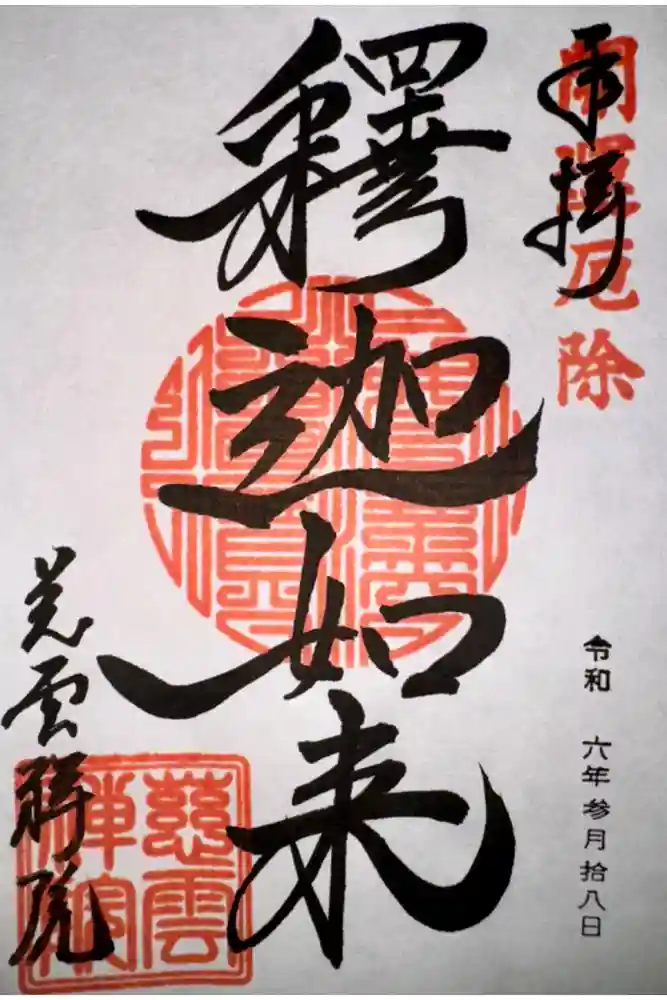 開運厄除
奉拝
釋迦如来
令和 六年参月拾八日
慈雲禅院
慈雲禅院